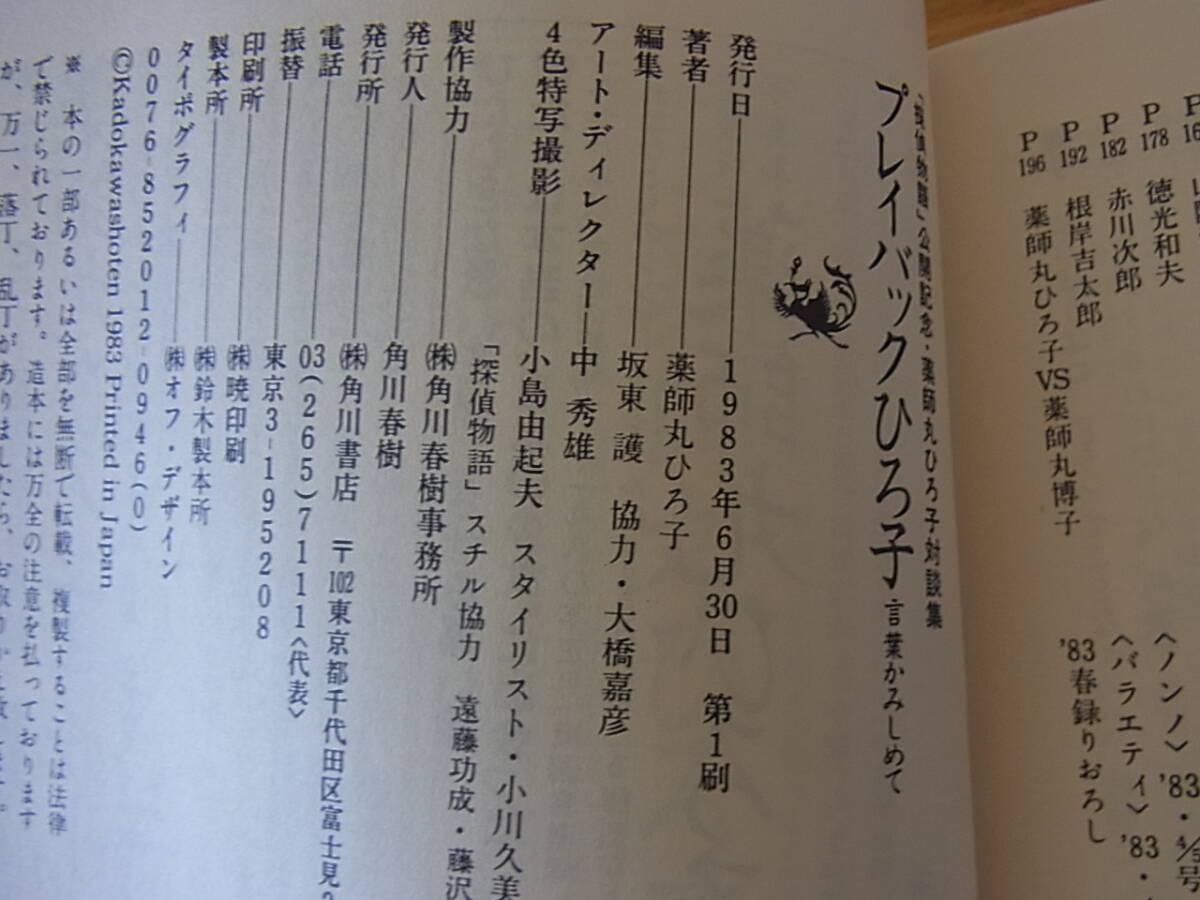 P 178 徳光和夫
P 182 赤川次郎
P 192 根岸吉太郎
P 196 薬師丸ひろ子VS薬師丸博子
〈ノンノ〉'83・4/5号
〈バラエティ〉'83・
'83春録りおろし
「探偵物語」公開記念・薬師丸ひろ子対談集
プレイバックひろ子 言葉かみしめて
発行日―1983年6月30日 第1刷
著者―薬師丸ひろ子
編集―坂東 護 協力・大橋嘉彦
アート・ディレクター―中 秀雄
4色特写撮影―小島由起夫 スタイリスト・小川久美
「探偵物語」スチル協力 遠藤功成・藤沢
製作協力―㈱角川春樹事務所
発行人―角川春樹
発行所―㈱角川書店 〒102東京都千代田区富士見2
電話―03(265)7111〈代表〉
振替―東京3-195208
印刷所―㈱暁印刷
製本所―㈱鈴木製本所
タイポグラフィ―㈱オフ・デザイン
0076-852012-0946(0)
©Kadokawashoten 1983 Printed in Japan
※ 本の一部あるいは全部を無断で転載、複製することは法律
で禁じられております。造本には万全の注意を払っております
が、万一、落丁、乱丁がありましたら、お取りかえ致します。